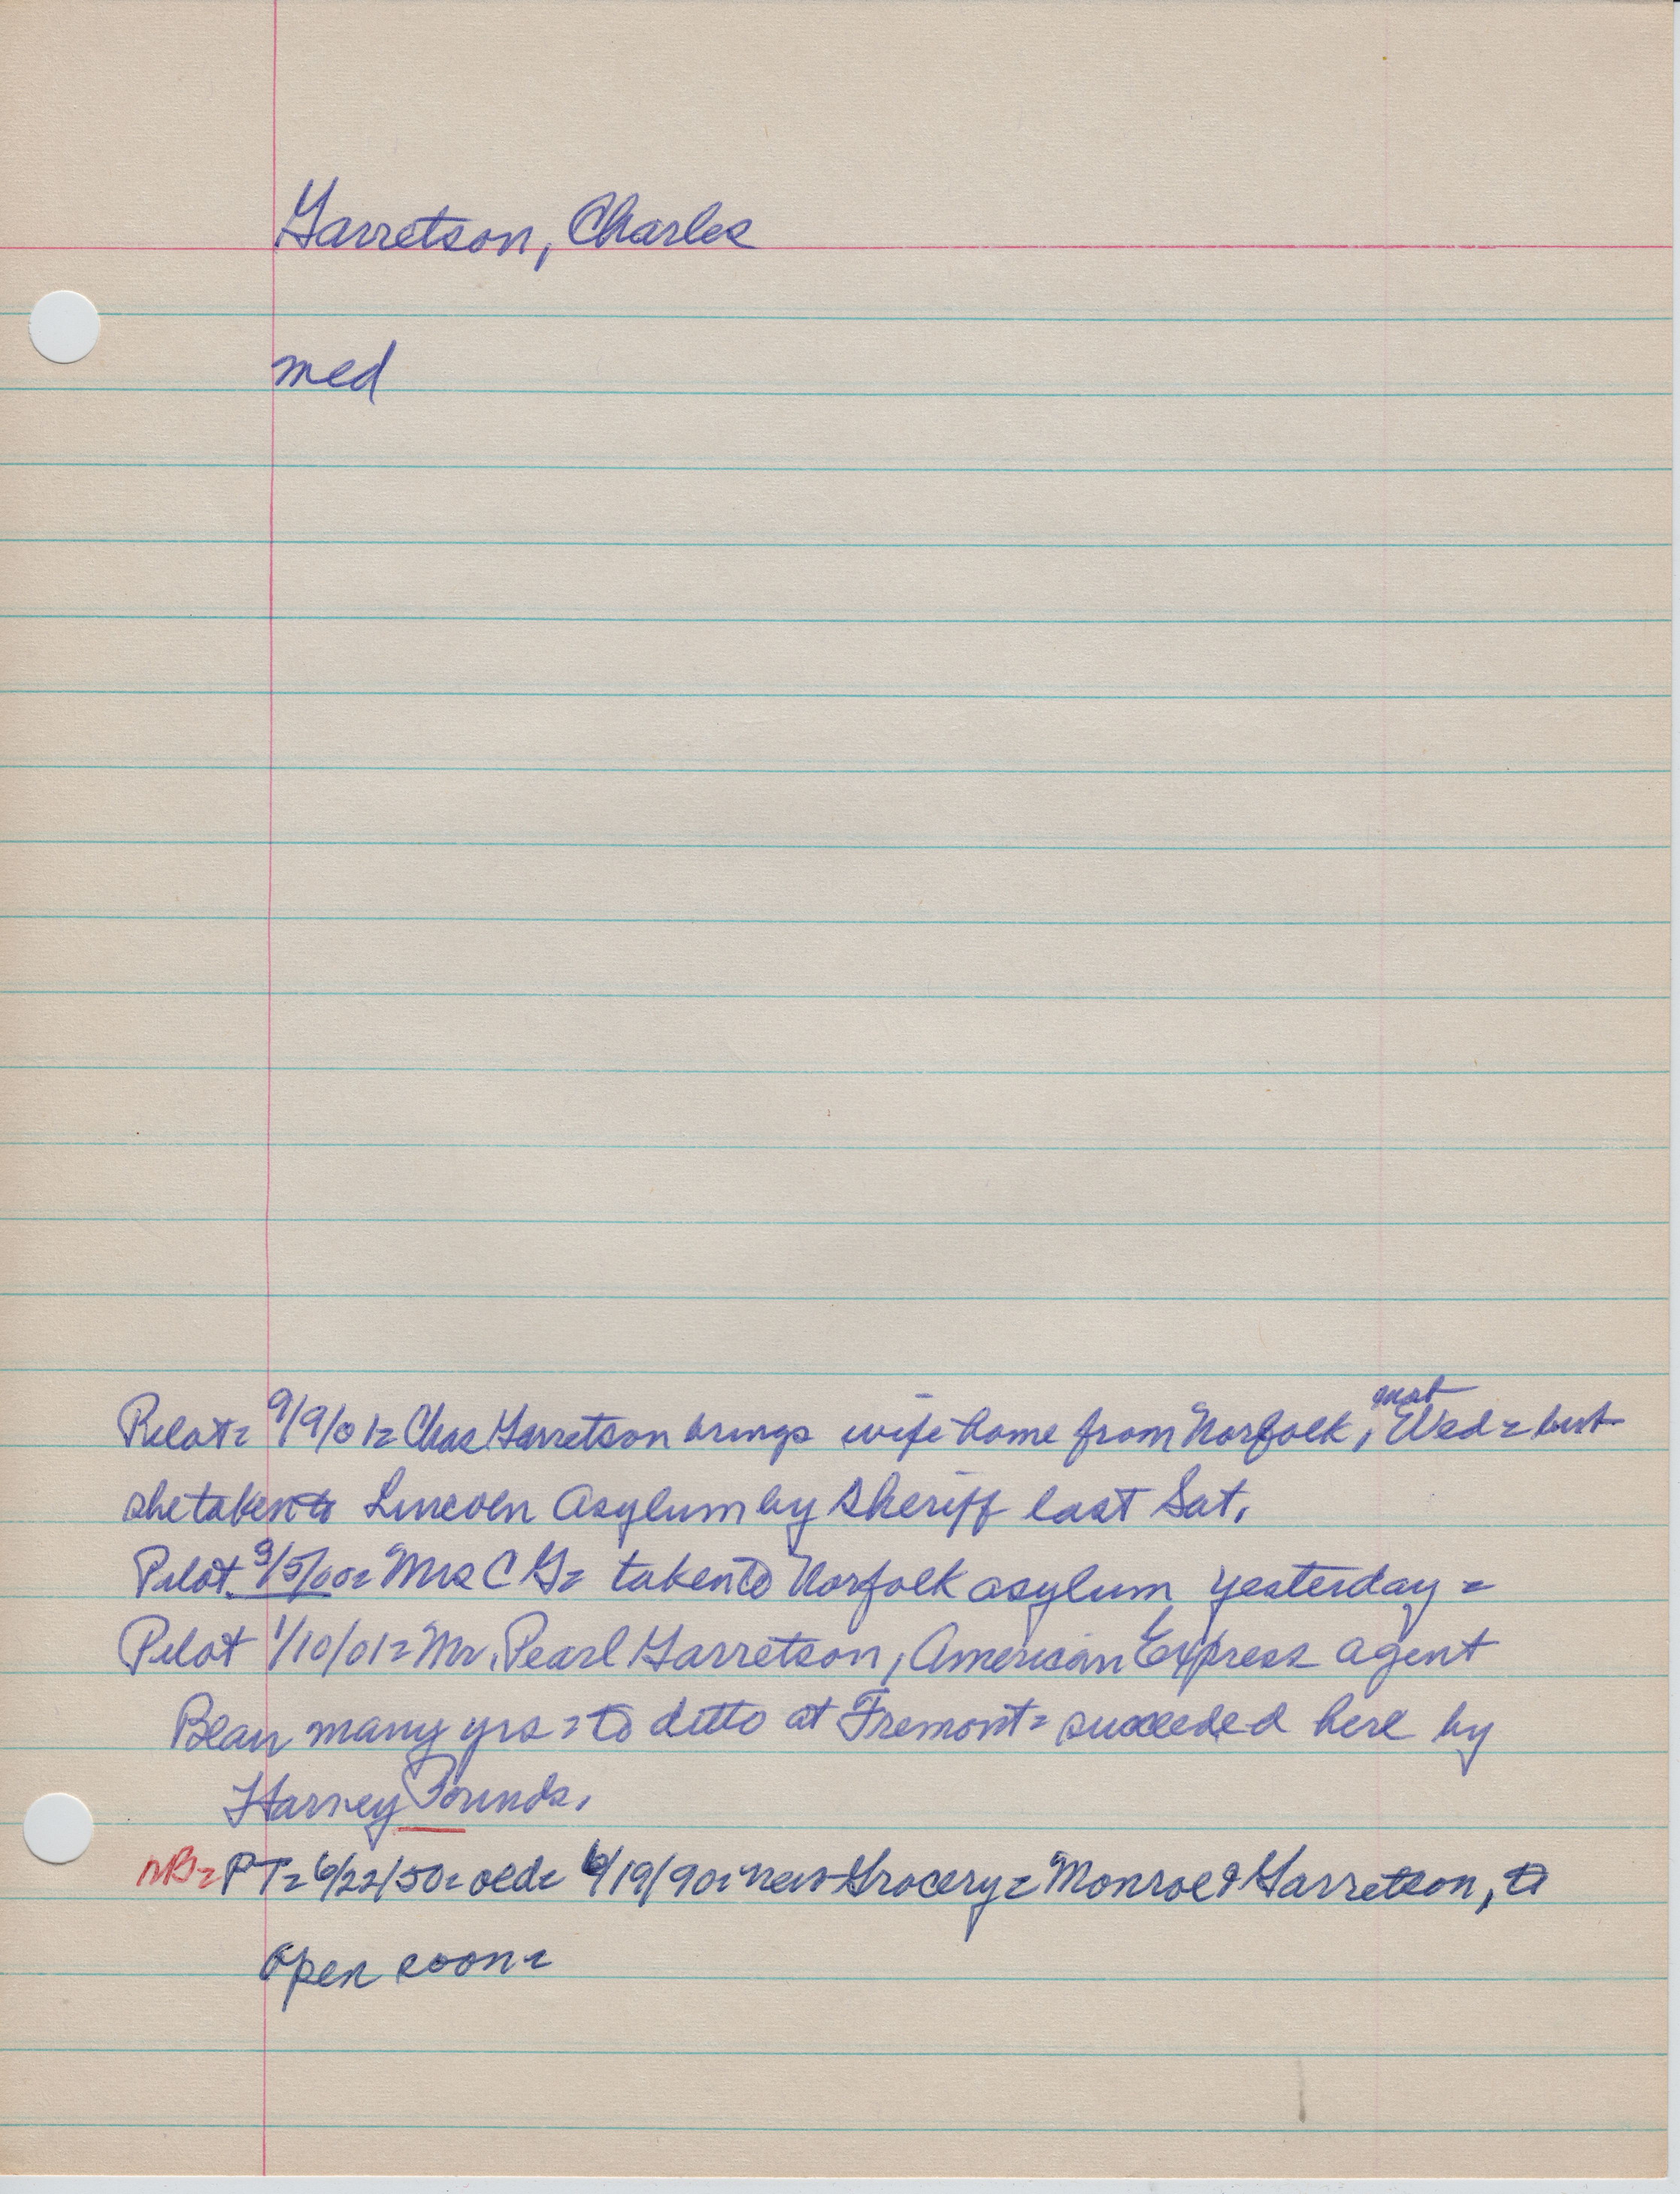 Garretson, Charles
med
Pilot= 9/9/01= Chas Garretson brings wife home from Norfolk, Wed = but
she taken to Lincoln Asylum by sheriff last Sat.
Pilot. 9/5/00= Mrs C G= taken to Norfolk asylum yesterday =
Pilot 1/10/01= Mr. Pearl Garretson, American Express agent
Blair many yrs = to ditto at Fremont = succeeded here by
Harvey Pounds.
NB= PT= 6/22/50= old= 6/19/90= new Grocery= Monroe & Garretson, to
open soon=